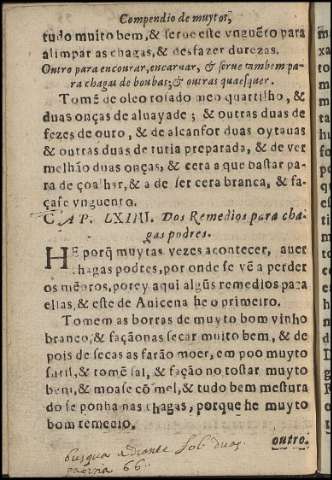 Compendio de muytos,
tudo muito bem, & serue este vnguẽto para
alimpar as chagas, & desfazer durezas.
Outro para encourar, encarnar, & serue tambem pa-
ra chagas de boubas; & outras quaesquer.
Tomẽ de oleo rosado meo quartilho, &
duas onças de aluayade; & outras duas de
fezes de ouro, & de alcanfor duas oytauas
& outras duas de tutia preparada, & de ver
melhão duas onças, & cera a que bastar pa-
ra de çoalhar, & a de ser cera branca, & fa-
çase vnguento.
CAP. LXIIII. Dos Remedios para cha-
gas podres.
HE porq̃ muytas vezes acontecer, auer
chagas podres, por onde se vẽ a perder
os mẽbros, porey aqui algũs remedios para
ellas, & este de Auicena he o primeiro.
Tomem as borras de muyto bom vinho
branco, & façãonas secar muito bem, & de
pois de secas as farão moer, em poo muyto
sutil, & tomẽ sal, & fação no tostar muyto
bem, & moase cõ mel, & tudo bem mestura
do se ponha nas chagas, porque he muyto
bom remedio.
outro.
busqua adiante
66